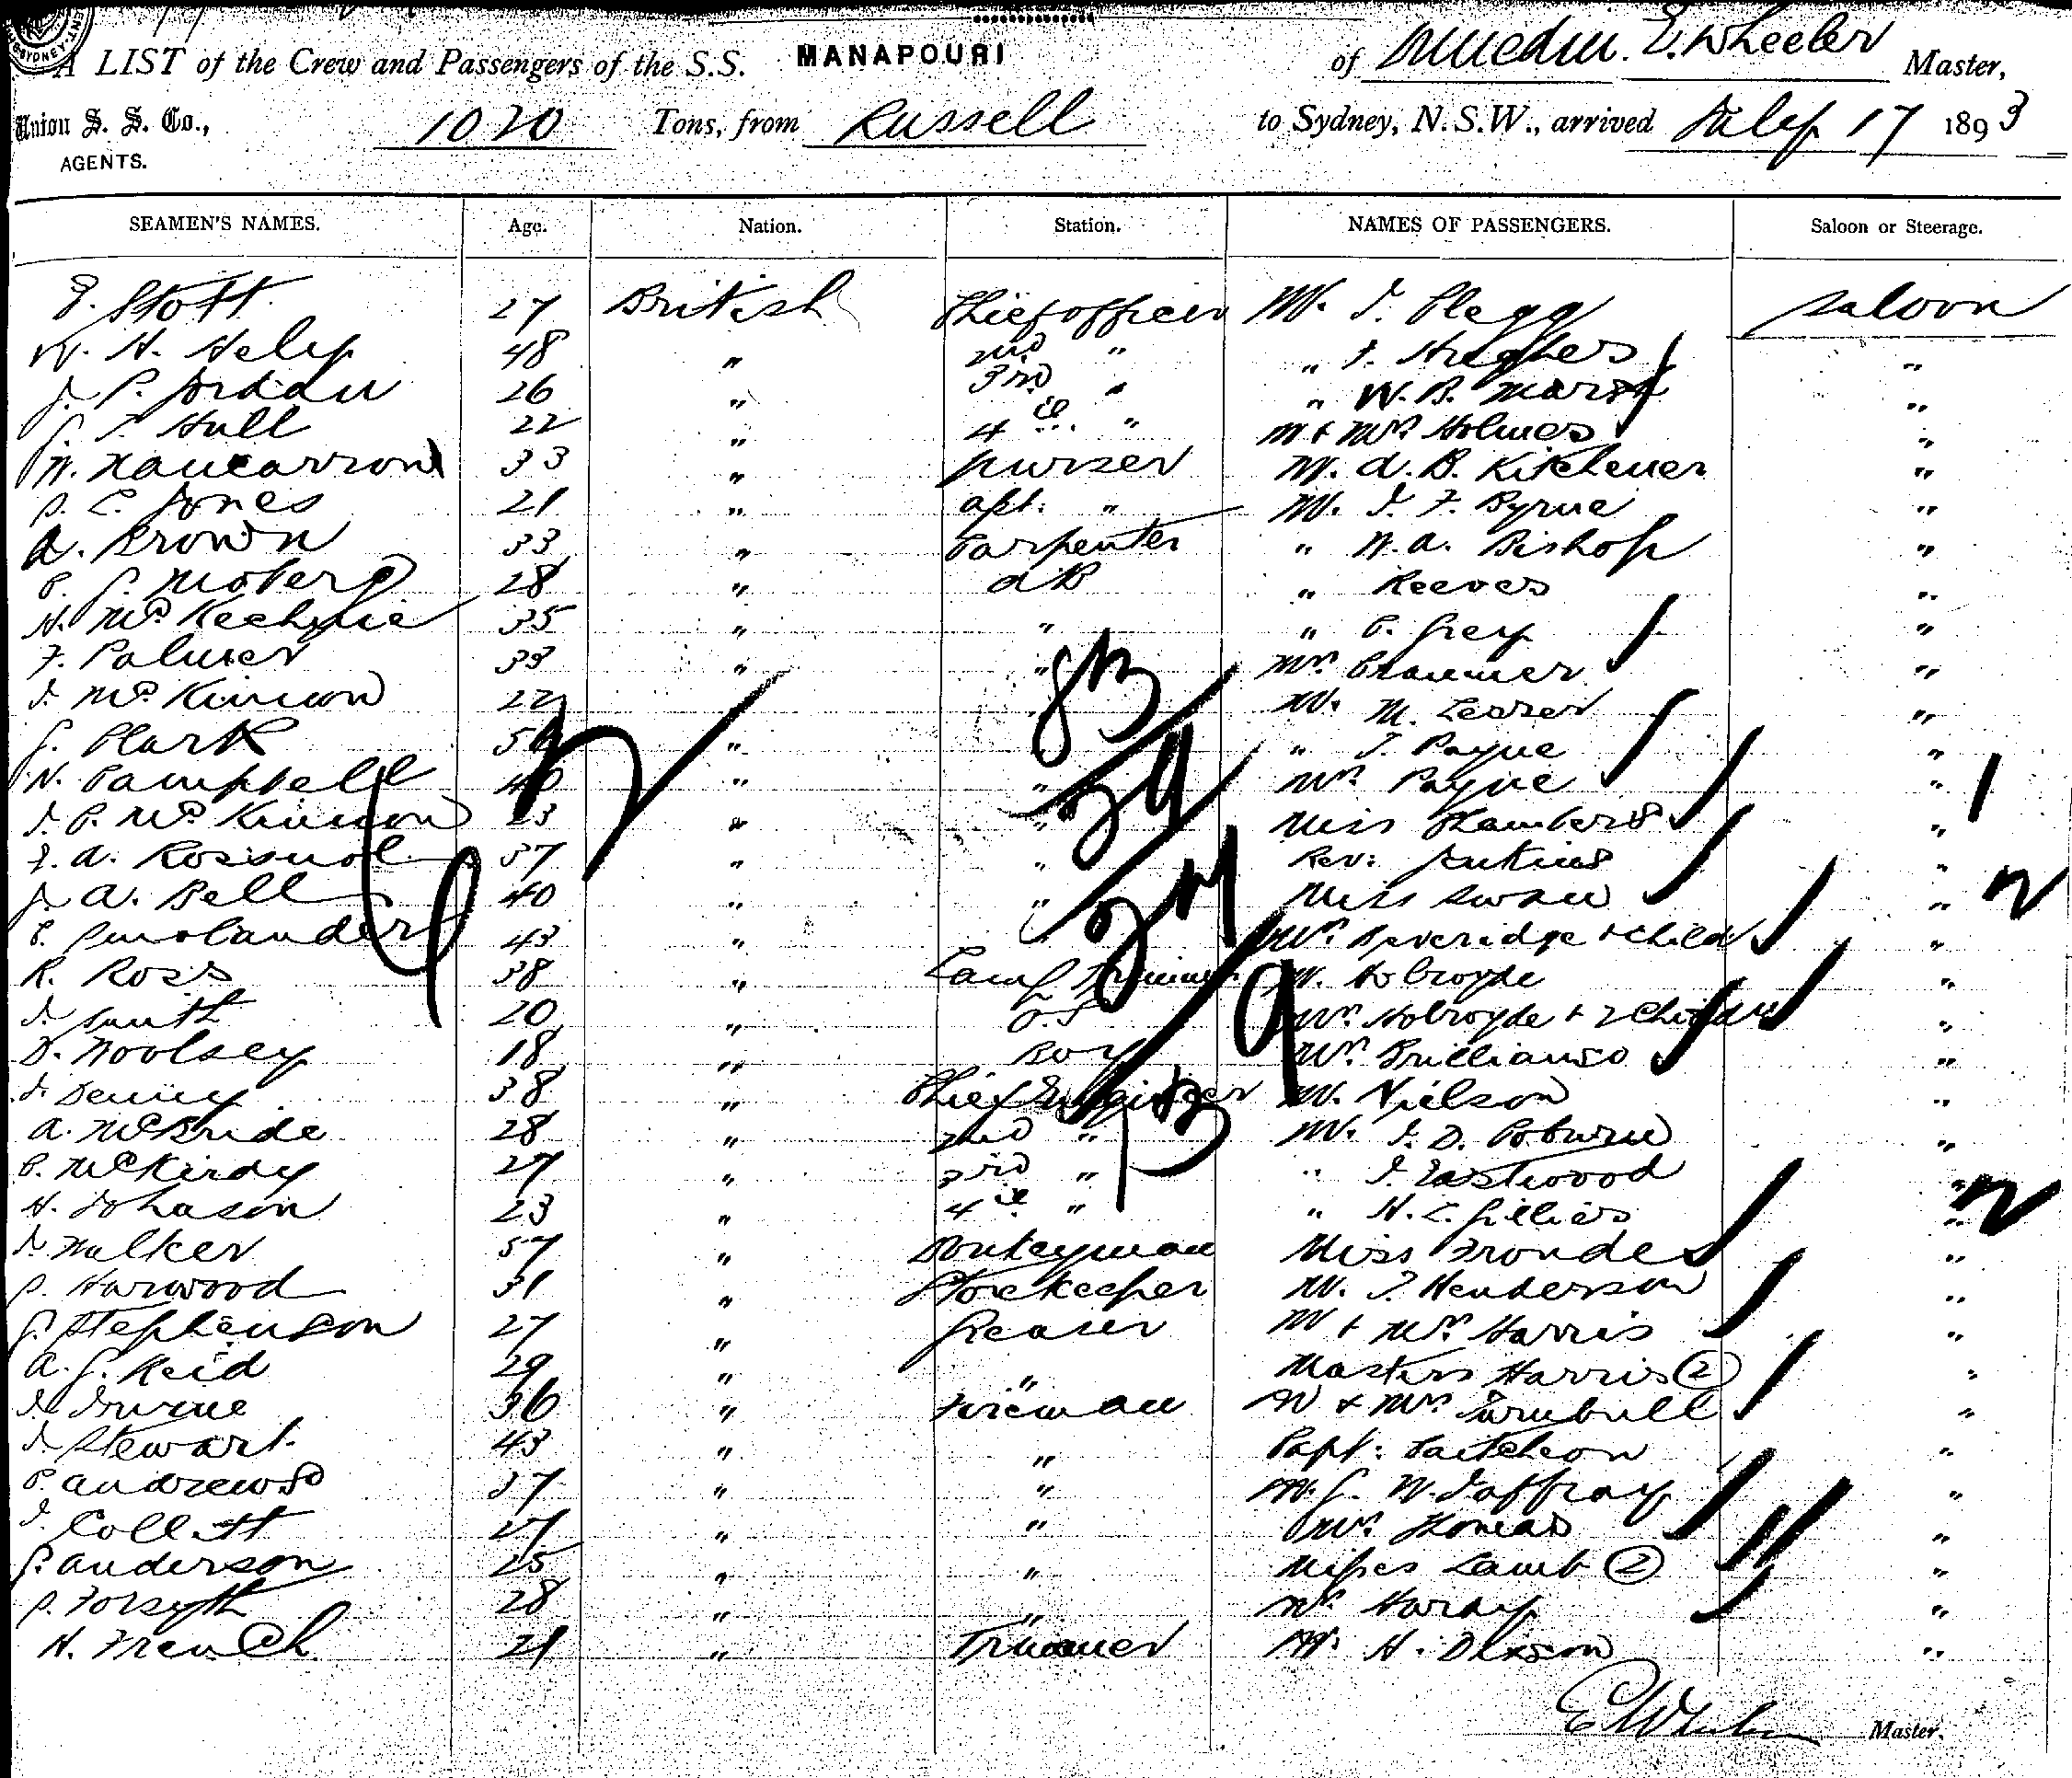 A LIST of the Crew and Passengers of the S.S. MANAPOURI of Dunedin. E. Wheeler Master,
Union S. S. Co., 1020 Tons, from Russell to Sydney, N.S.W., arrived July 17 1893
AGENTS.
SEAMEN'S NAMES. Age. Nation. Station. NAMES OF PASSENGERS. Saloon or Steerage.
E. Stott 27 British Chief officer Mr. J. Clegg Saloon
W. H. Hely 48 " 2nd " " F. Hughes "
J. P. Jordan 26 " 3rd " " W. B. Marsh "
Hull 22 " 4th " Mr & Mrs Holmes "
W. Nancarrow 33 " purser Mr. A. B. Kitchener "
C. Jones 21 " apt. " Mr. J. F. Byrne "
A. Brown 33 " Carpenter " W. A. Bishop "
C. G. Moberg 28 " AB " Reeves "
H. McKechnie 35 " " " C. Grey "
F. Palmer 33 " " Mrs Crammer "
J. McKinnon 22 " " Mr. M. Lesser "
G. Clark " " " J. Payne "
N. Campbell 40 " " Mrs Payne "
J. C. McKinnon 23 " " Miss Chambers "
37 " " Rev. Jenkins "
J. A. Bell 40 " " Miss Swan "
43 " " Mrs Beveridge & Child "
R. Ross 38 " Lamp Trimmer Mr. Holroyde "
J. Smith 20 " O.S Mrs Holroyde & 2 Children "
D. Woolsey 18 " Boy Mrs "
J. Denny 38 " Chief Engineer Mr. Nielson "
A. McBride 28 " 2nd " Mr. J. D. "
C. McKirdy 27 " 3rd " " J. Eastwood "
H. Johnson 23 " 4th " " H. L. Gillies "
J. Walker 57 " Donkeyman Miss "
S. Harwood 31 " Storekeeper Mr. J. Henderson "
G. Stephenson 27 " Greaser Mr & Mrs Harris "
A. G. Reid 29 " " Masters Harris (2) "
J. Irvine 36 " Fireman Mr & Mrs Turnbull "
J. Stewart 43 " " Capt. "
C. Andrews 37 " " Mr. G. W. Jaffray "
J. Collett 27 " " Mrs Thomas "
G. Anderson 25 " " Misses Lamb (2) "
Forsyth 28 " " Mrs Hardy "
H. French 21 " Trimmer Mr. H. Dixson "
E Wheeler Master.